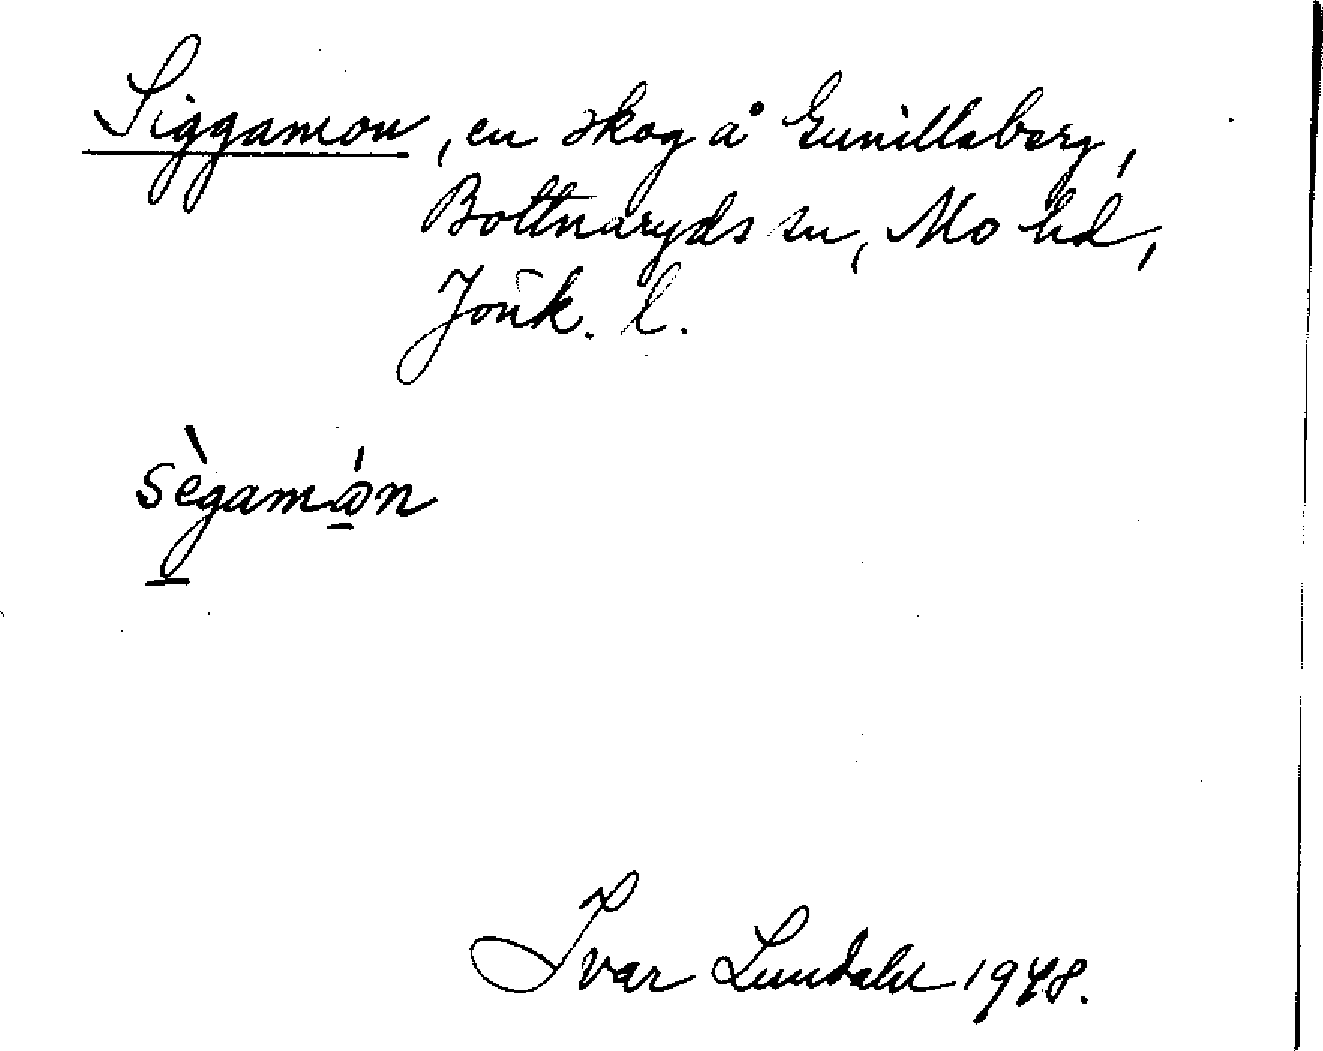 Siggamon, en skog å Gunillaberg,
Bottnaryds sn, Mo hd,
Jönk. l.
sègamón
Ivar Lundahl 1948.